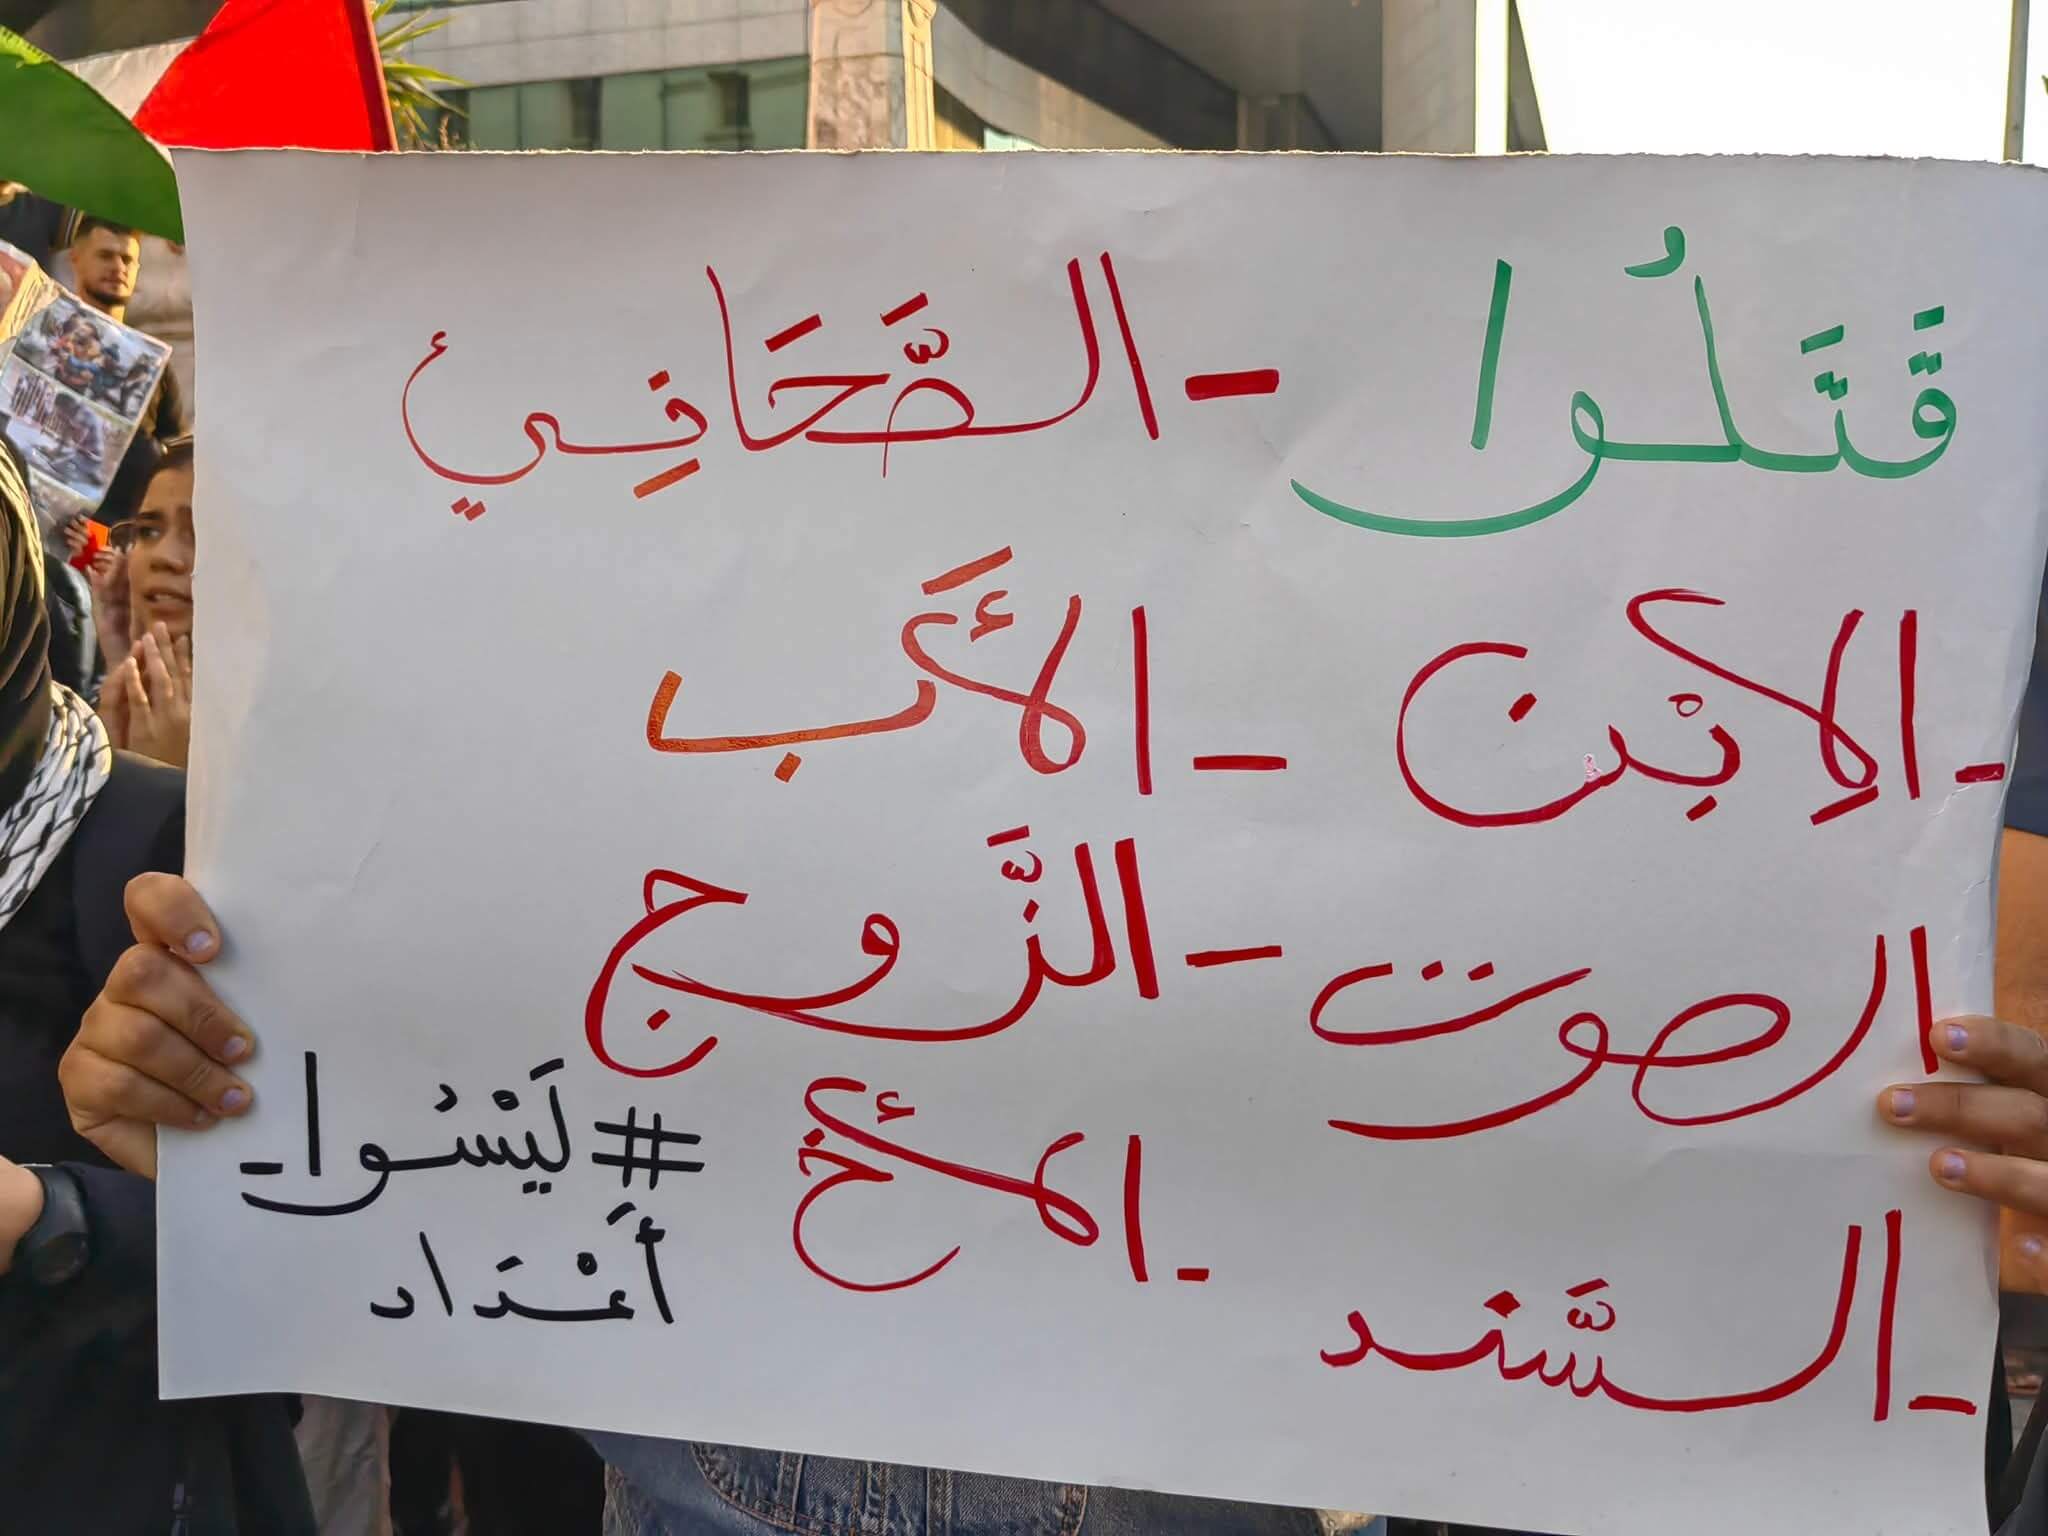 قَتَلُوا - الصَّحَافِي
- الاِبْن - الأَب
الصوت - الزَّوج
- السَّند - الأخ
#لَيْسُوا-
أَعْدَاد